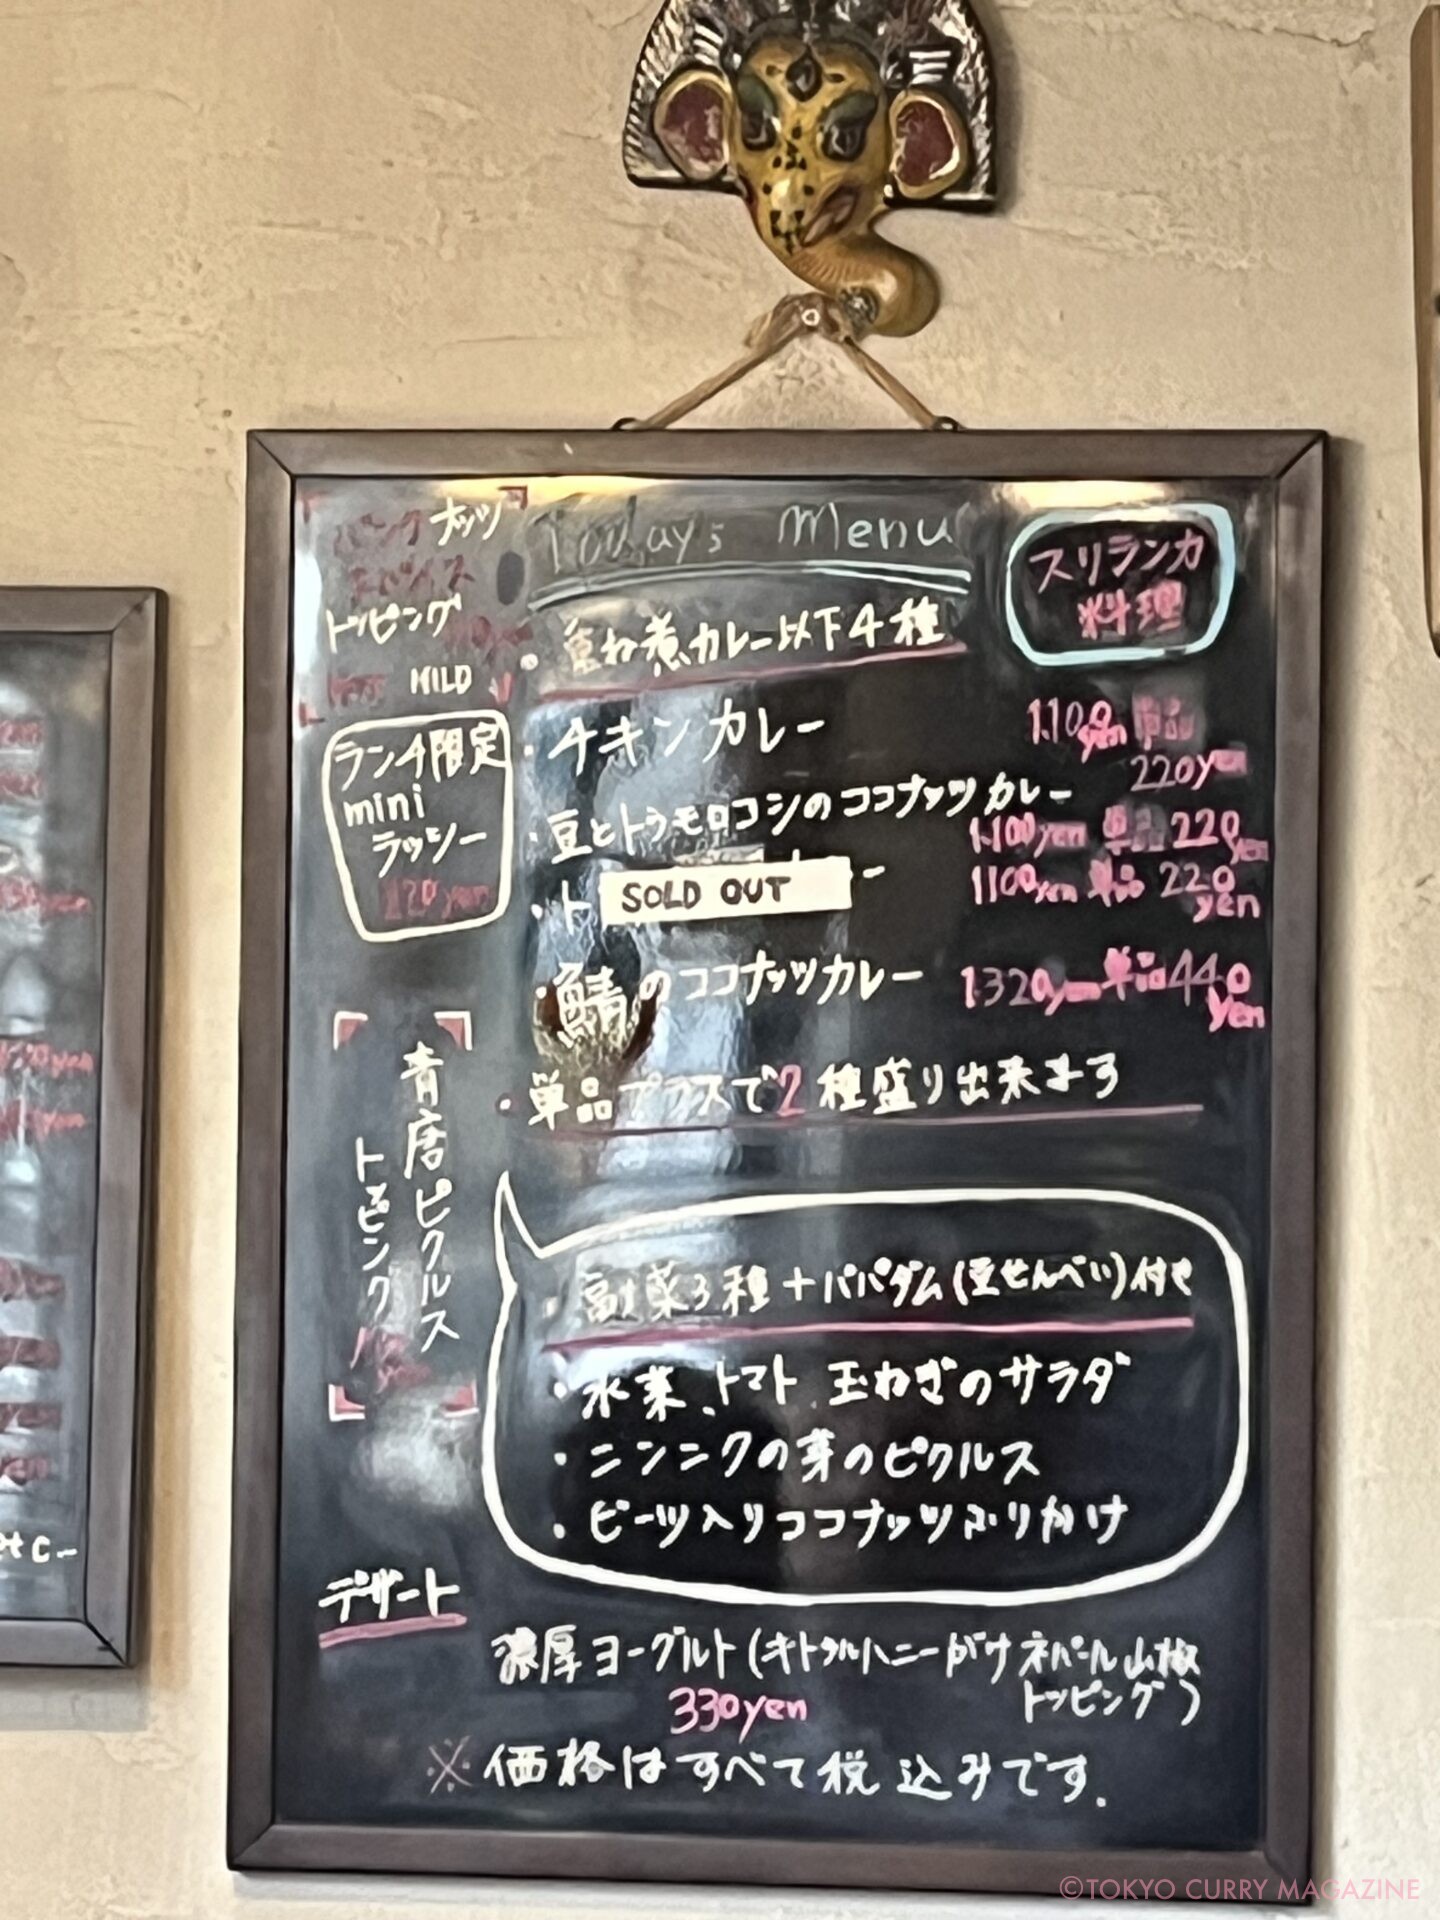 ナッツ
トッピング
MILD
Today's Menu
スリランカ
料理
・重ね煮カレー以下4種
ランチ限定
mini
ラッシー
120yen
・チキンカレー
1.100yen 単品
220yen
・豆とトウモロコシのココナッツカレー
1.100yen 単品 220yen
・ト
SOLD OUT
ー
1100yen 単品 220yen
・鯖のココナッツカレー 1.320yen 単品 440yen
・単品プラスで2種盛り出来ます
青唐ピクルス
トッピング
・副菜3種+パパダム(豆せんべい)付き
・水菜、トマト、玉ねぎのサラダ
・ニンニクの芽のピクルス
・ビーツ入りココナッツふりかけ
デザート
濃厚ヨーグルト(キトゥルハニーがけ ネパール山椒
トッピング)
330yen
※価格はすべて税込みです.
etc-
©TOKYO CURRY MAGAZINE